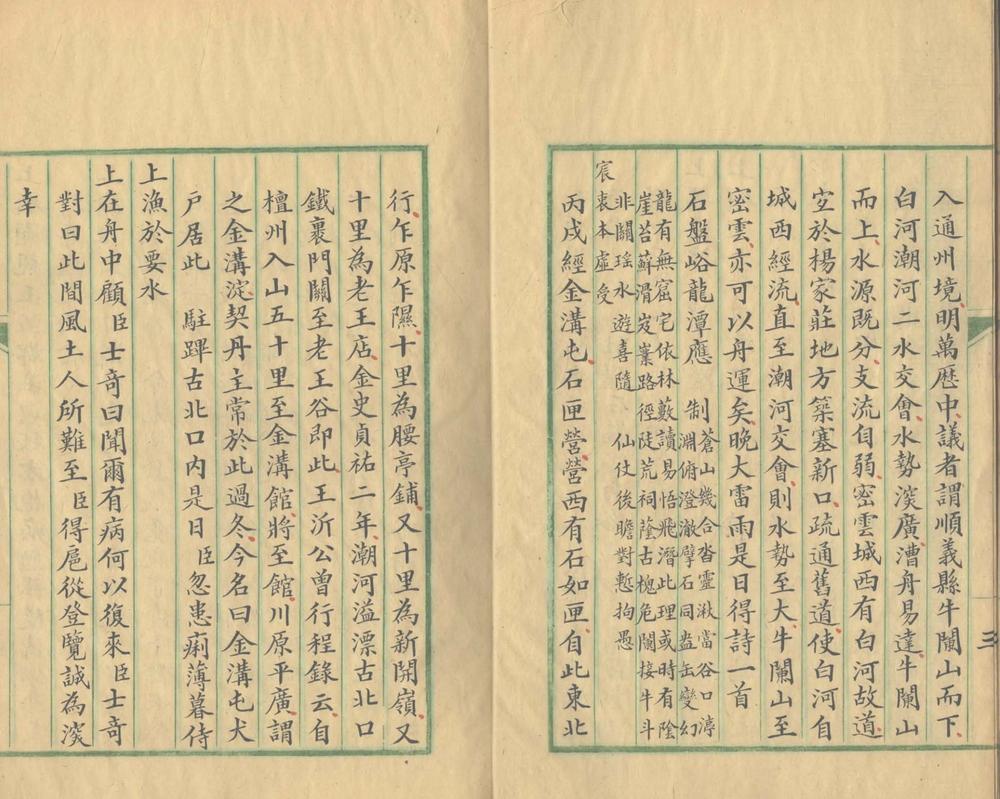 入通州境明萬歷中議者謂順義縣牛闌山而下
白河潮河二水交會水勢深廣漕舟易達牛闌山
而上水源既分支流自弱密雲城西有白河故道
宜於楊家莊地方築塞新口疏通舊道使白河自
城西經流直至潮河交會則水勢至大牛闌山至
密雲亦可以舟運矣晚大雷雨是日得詩一首
石盤峪龍潭應 制
蒼山幾合沓靈湫當谷口渟
淵俯澄澈擘石同盎缶變幻
龍有無窟宅依林藪讀易悟飛潛此理或時有陰
崖苔蘚滑岌嶪路徑陡荒祠蔭古槐危闌接牛斗
非關瑤水遊喜隨 仙仗後瞻對慙拘愚
宸衷本虛受
丙戌經金溝屯石匣營營西有石如匣自此東北
三
行乍原乍隰十里為腰亭鋪又十里為新開嶺又
十里為老王店金史貞祐二年潮河溢漂古北口
鐵裹門關至老王谷即此王沂公曾行程錄云自
檀州入山五十里至金溝館將至館川原平廣謂
之金溝淀契丹主常於此過冬今名曰金溝屯犬
戶居此 駐蹕古北口內是日臣忽患痢薄暮侍
上漁於要水
上在舟中顧臣士奇曰聞爾有病何以復來臣士奇
對曰此間風土人所難至臣得扈從登覽誠為深
幸